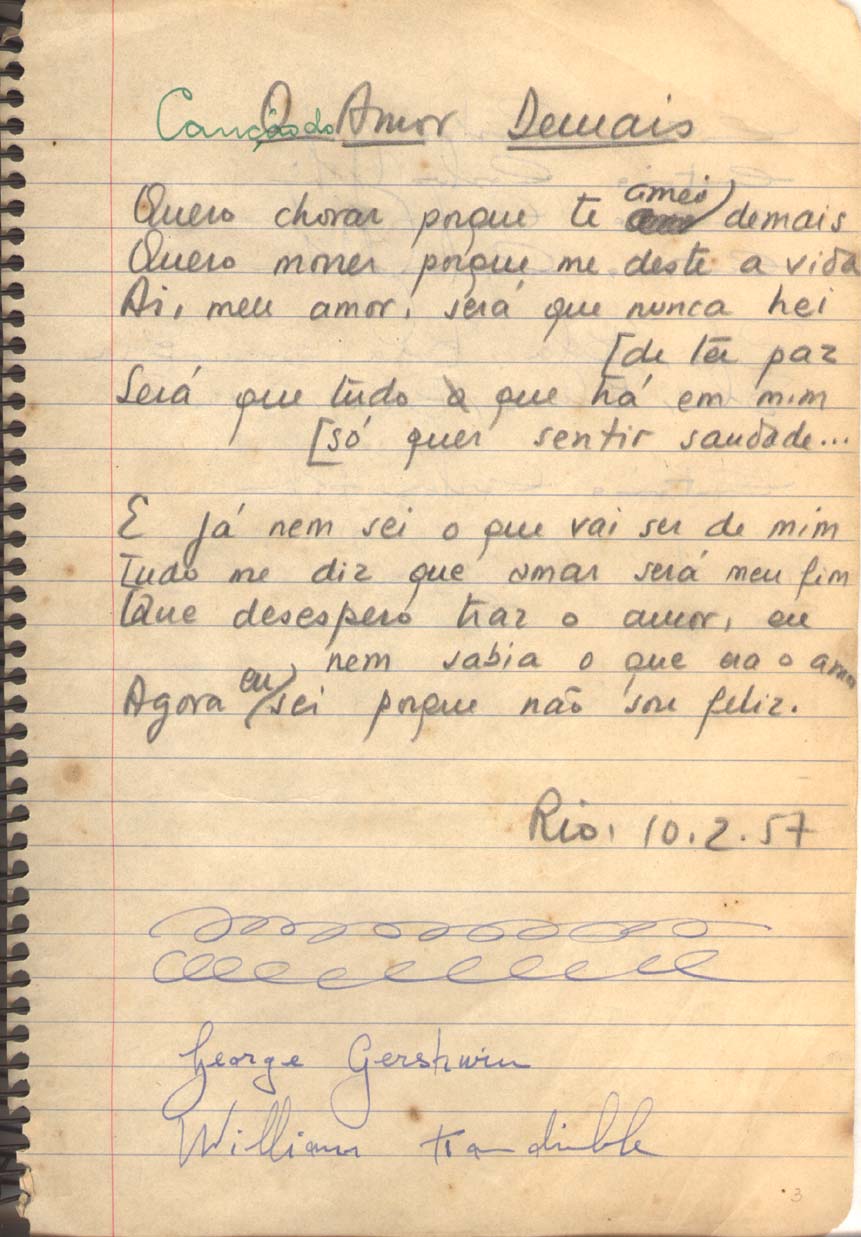 Canção do O Amor Demais
Quero chorar porque te amei demais
Quero morrer porque me deste a vida
Ai, meu amor, será que nunca hei
[de ter paz
Será que tudo o que há em mim
[só quer sentir saudade...
E já nem sei o que vai ser de mim
Tudo me diz que amar será meu fim
Que desespero traz o amor, eu
nem sabia o que era o amor
Agora eu sei porque não sou feliz.
Rio, 10.2.57
George Gershwin
William
3